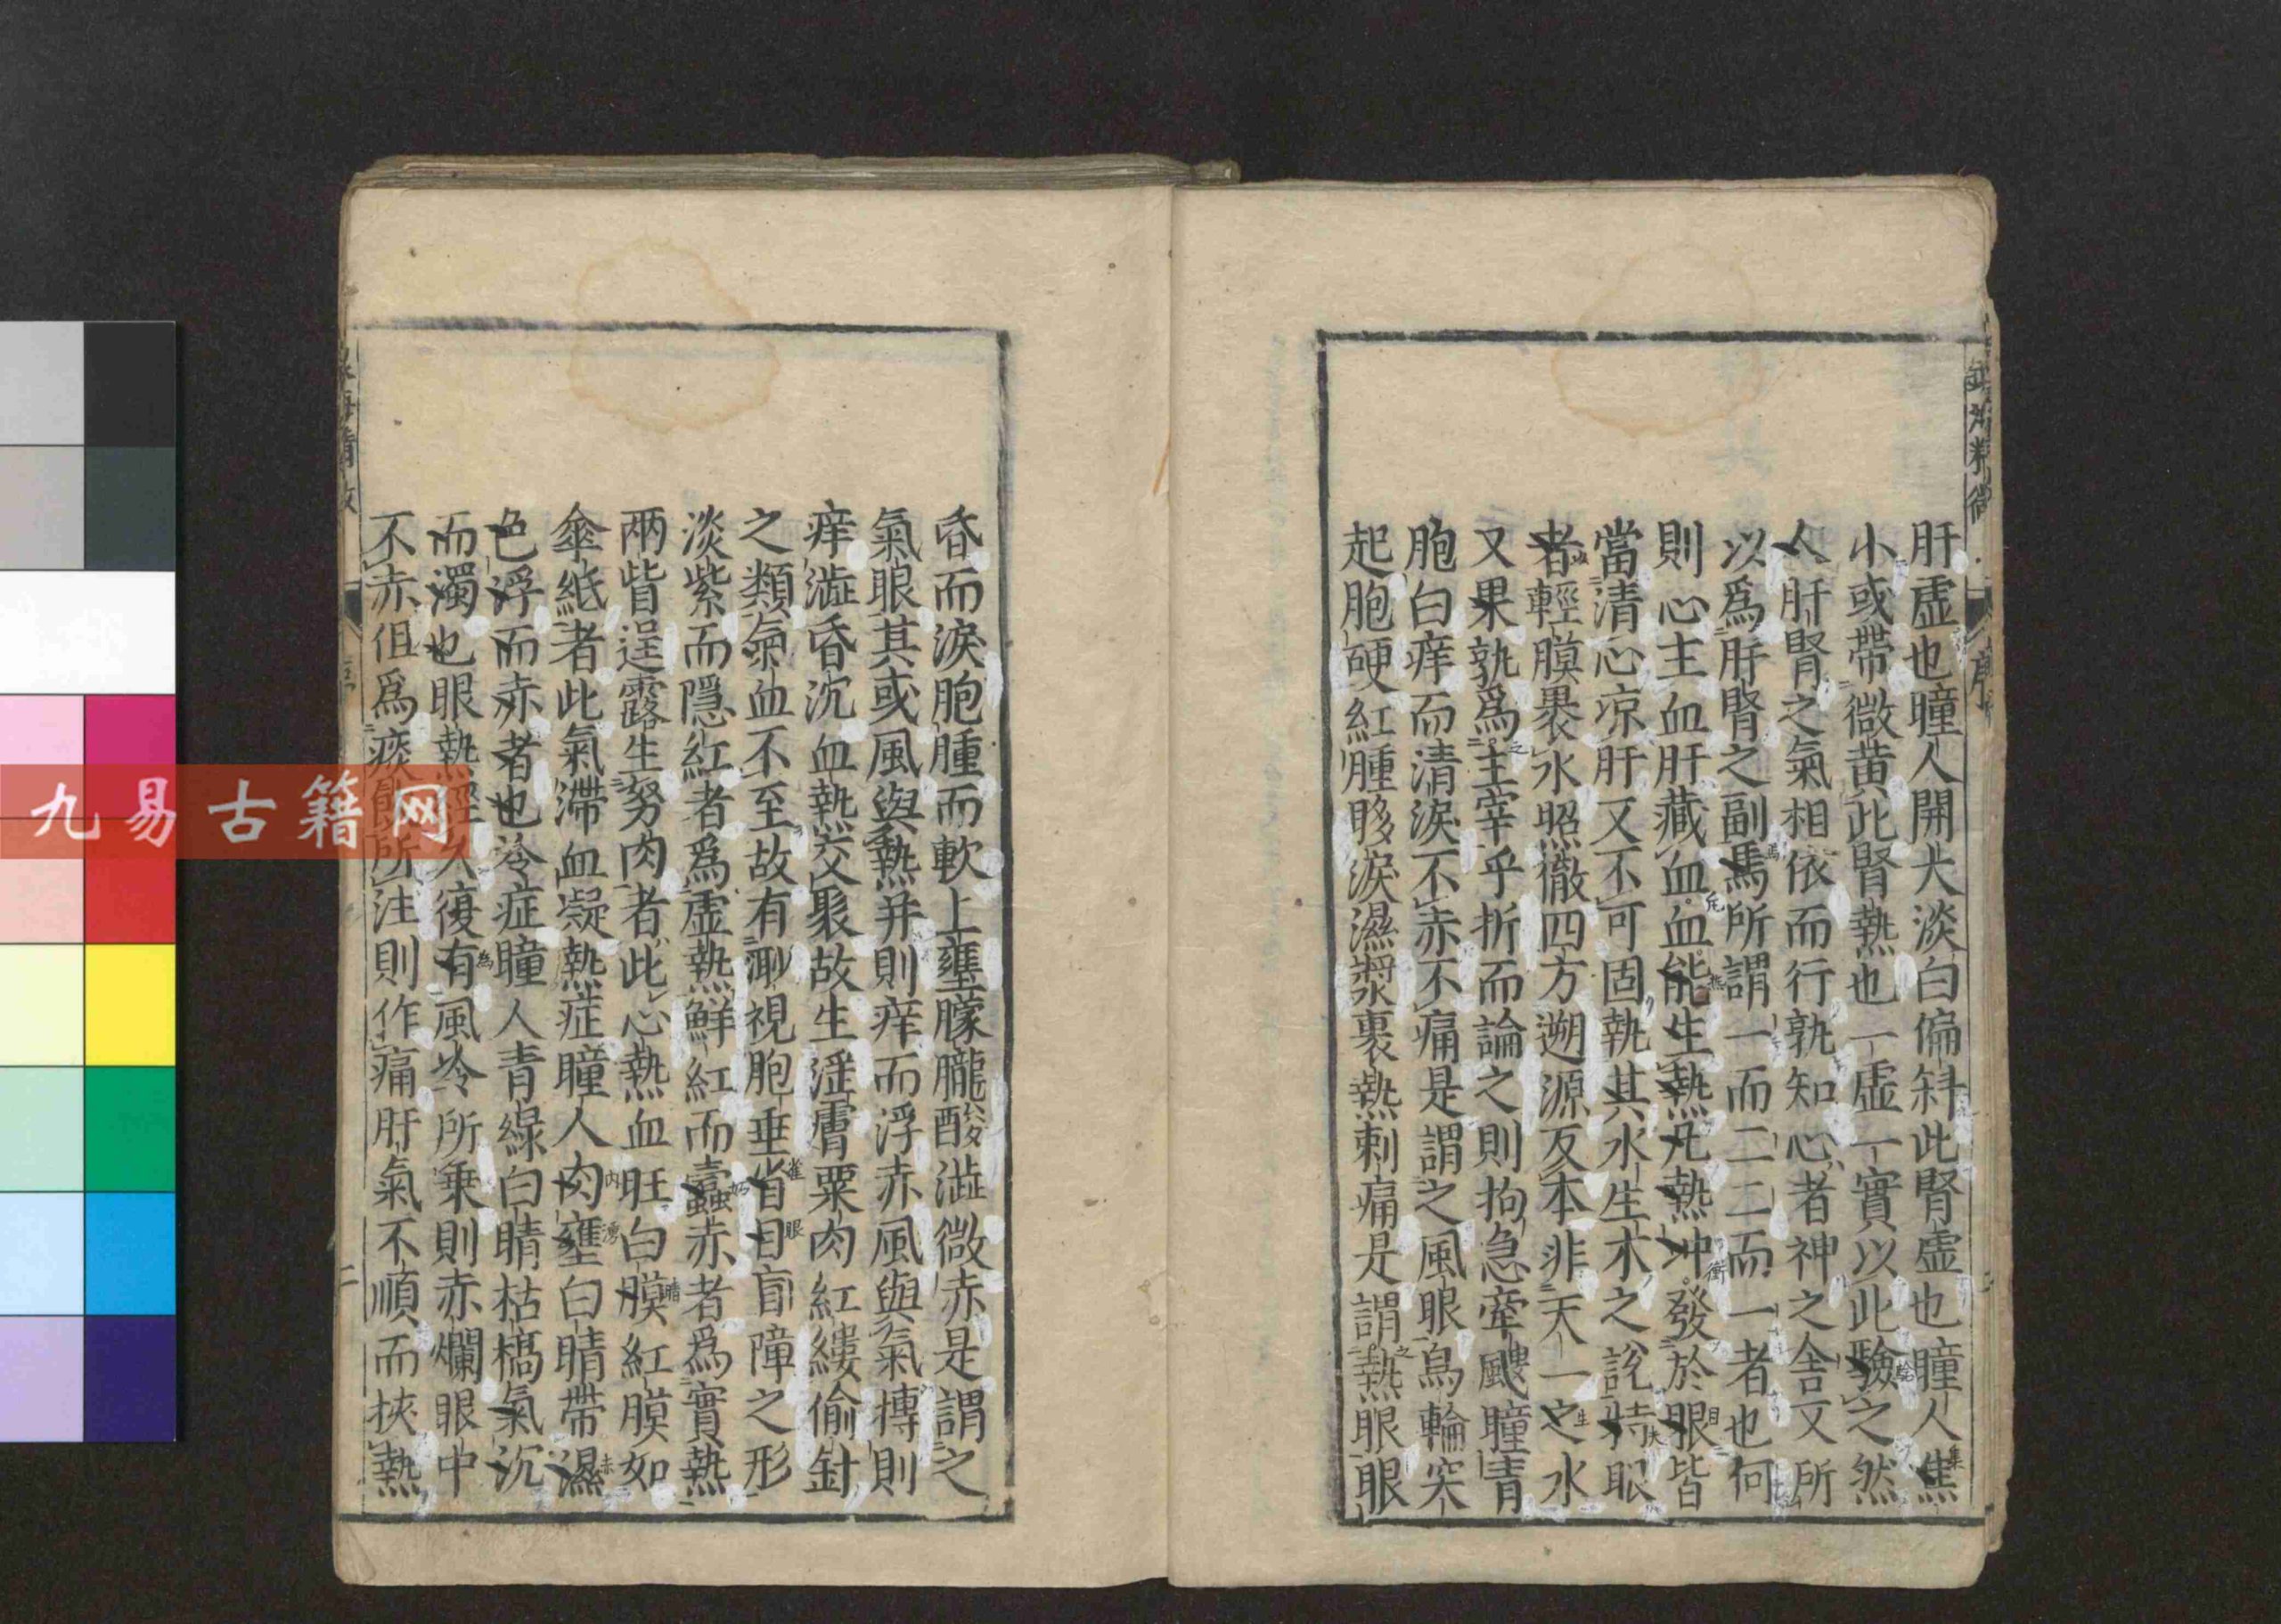 肝虛也瞳人開大淡白偏斜此腎虛也瞳人焦
小或帶微黄此腎熱也一虛一實以此驗之然
人肝腎之氣相依而行孰知心者神之舍又所
以爲肝腎之副焉所謂一而二二而一者也何
則心主血肝藏血血能生熱凡熱冲發於眼皆
當清心凉肝又不可固執其水生木之說特眼
者輕膜裹水照徹四方遡源反本非天一之水
又果孰爲主宰乎折而論之則拘急牽飕瞳青
胞白痒而清淚不赤不痛是謂之風眼烏輪突
起胞硬紅腫眵淚濕漿裹熱刺痛是謂熱眼眼
昏而淚胞腫而軟上壅朦朧酸澁微赤是謂之
氣眼其或風與熱并則痒而浮赤風與氣摶則
痒澁昏沉血熱交聚故生淫膚粟肉紅縷偷針
之類氣血不至故有眇視胞垂眥目盲障之形
淡紫而隱紅者爲虛熱鮮紅而蠹赤者爲實熱
兩眥逞露生努肉者此心熱血旺白膜紅膜如
傘紙者此氣滯血凝熱症瞳人肉壅白睛帶濕
色浮而赤者也冷症瞳人青綠白睛枯槁氣沉
而濁也眼熱經久復有風冷所乗則赤爛眼中
不赤但爲痰飲所注則作痛肝氣不順而挾熱
序
二
九易古籍网